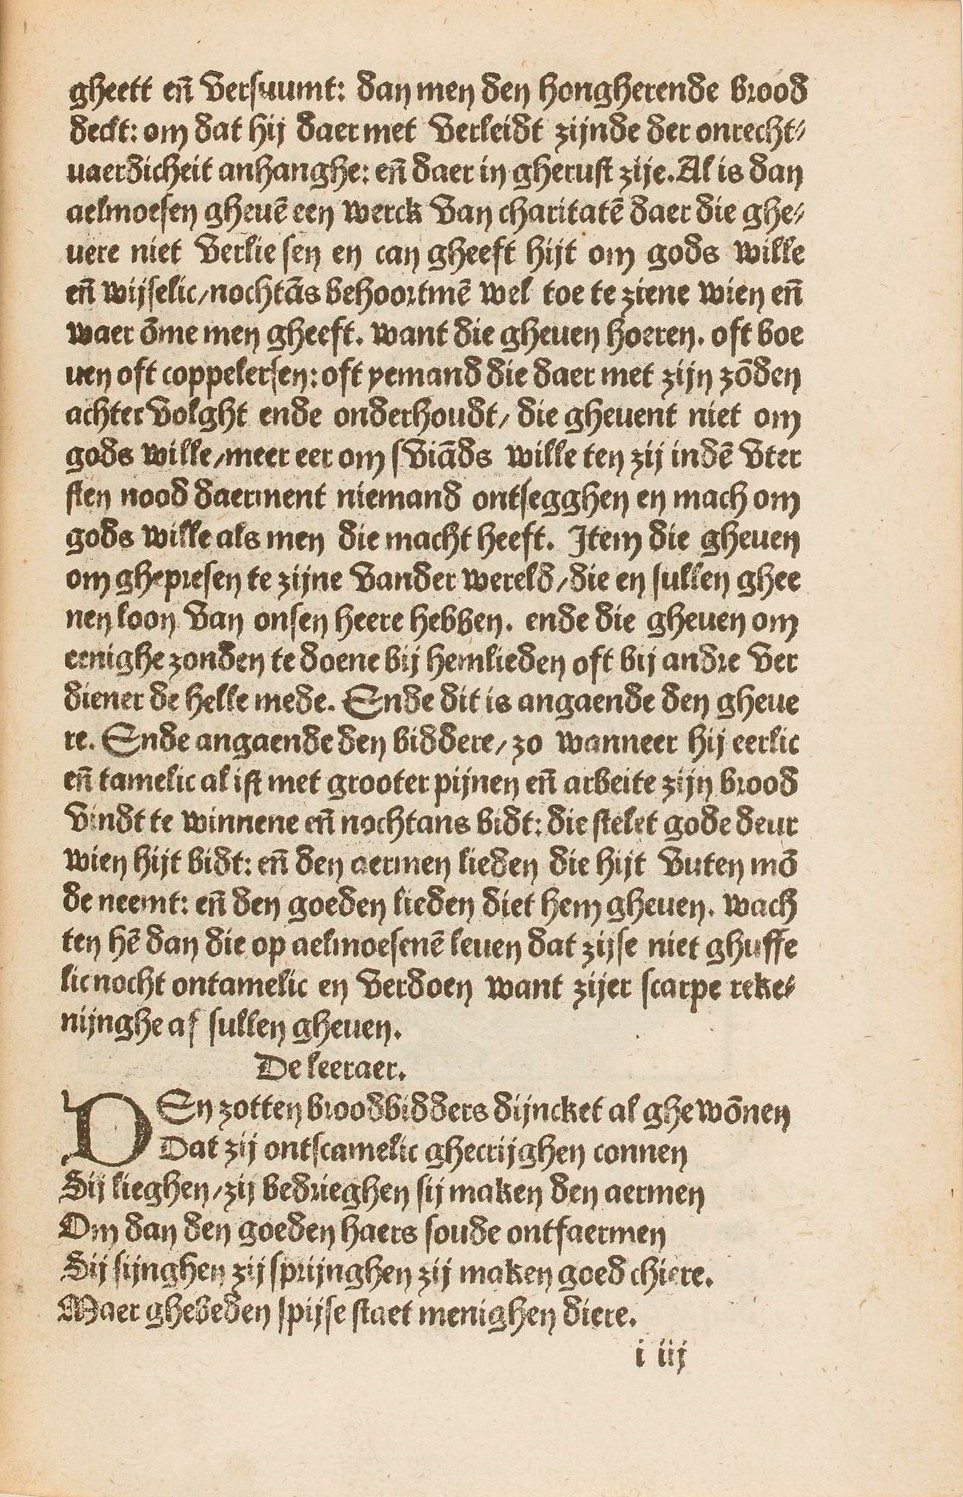 gheett eñ versuumt: dan men den hongherende brood
deckt: om dat hij daer met verleidt zijnde der onrecht⸗
uaerdicheit anhanghe: eñ daer in gherust zije. Al is dan
aelmoesen gheuē een werck van charitatē daer die ghe⸗
uere niet verlie sen en can gheeft hijt om gods wille
eñ wijselic/nochtās behoortmē wel toe te ziene wien eñ
waer ōme men gheeft. want die gheuen hoeren. oft boe
uen oft coppelersen: oft yemand die daer met zijn zōden
achter volght ende onderhoudt/ die gheuent niet om
gods wille/meer eer om sviāds wille ten zij indē vter
sten nood daerment niemand ontsegghen en mach om
gods wille als men die macht heeft. Item die gheuen
om ghepresen te zijne vander wereld/die en sullen ghee
nen loon van onsen heere hebben. ende die gheuen om
eenighe zonden te doene bij hemlieden oft bij andre ver
diener de helle mede. Ende dit is angaende den gheue
re. Ende angaende den biddere/zo wanneer hij eerlic
eñ tamelic al ist met grooter pijnen eñ arbeite zijn brood
vindt te winnene eñ nochtans bidt: die stelet gode deur
wien hijt bidt: eñ den aermen lieden die hijt vuten mō
de neemt: eñ den goeden lieden diet hem gheuen. wach
ten hē dan die op aelmoesenē leuen dat zijse niet ghuffe
lic nocht ontamelic en verdoen want zijer scarpe reke⸗
nijnghe af sullen gheuen.
De leeraer.
DEn zotten broodbidders dijncket al ghewōnen
Dat zij ontscamelic ghecrijghen connen
Sij lieghen/zij bedrieghen sij maken den aermen
Om dan den goeden haers soude ontfaermen
Sij sijnghen zij sprijnghen zij maken goed chiere.
Maer ghebeden spijse staet menighen diere.
i iij